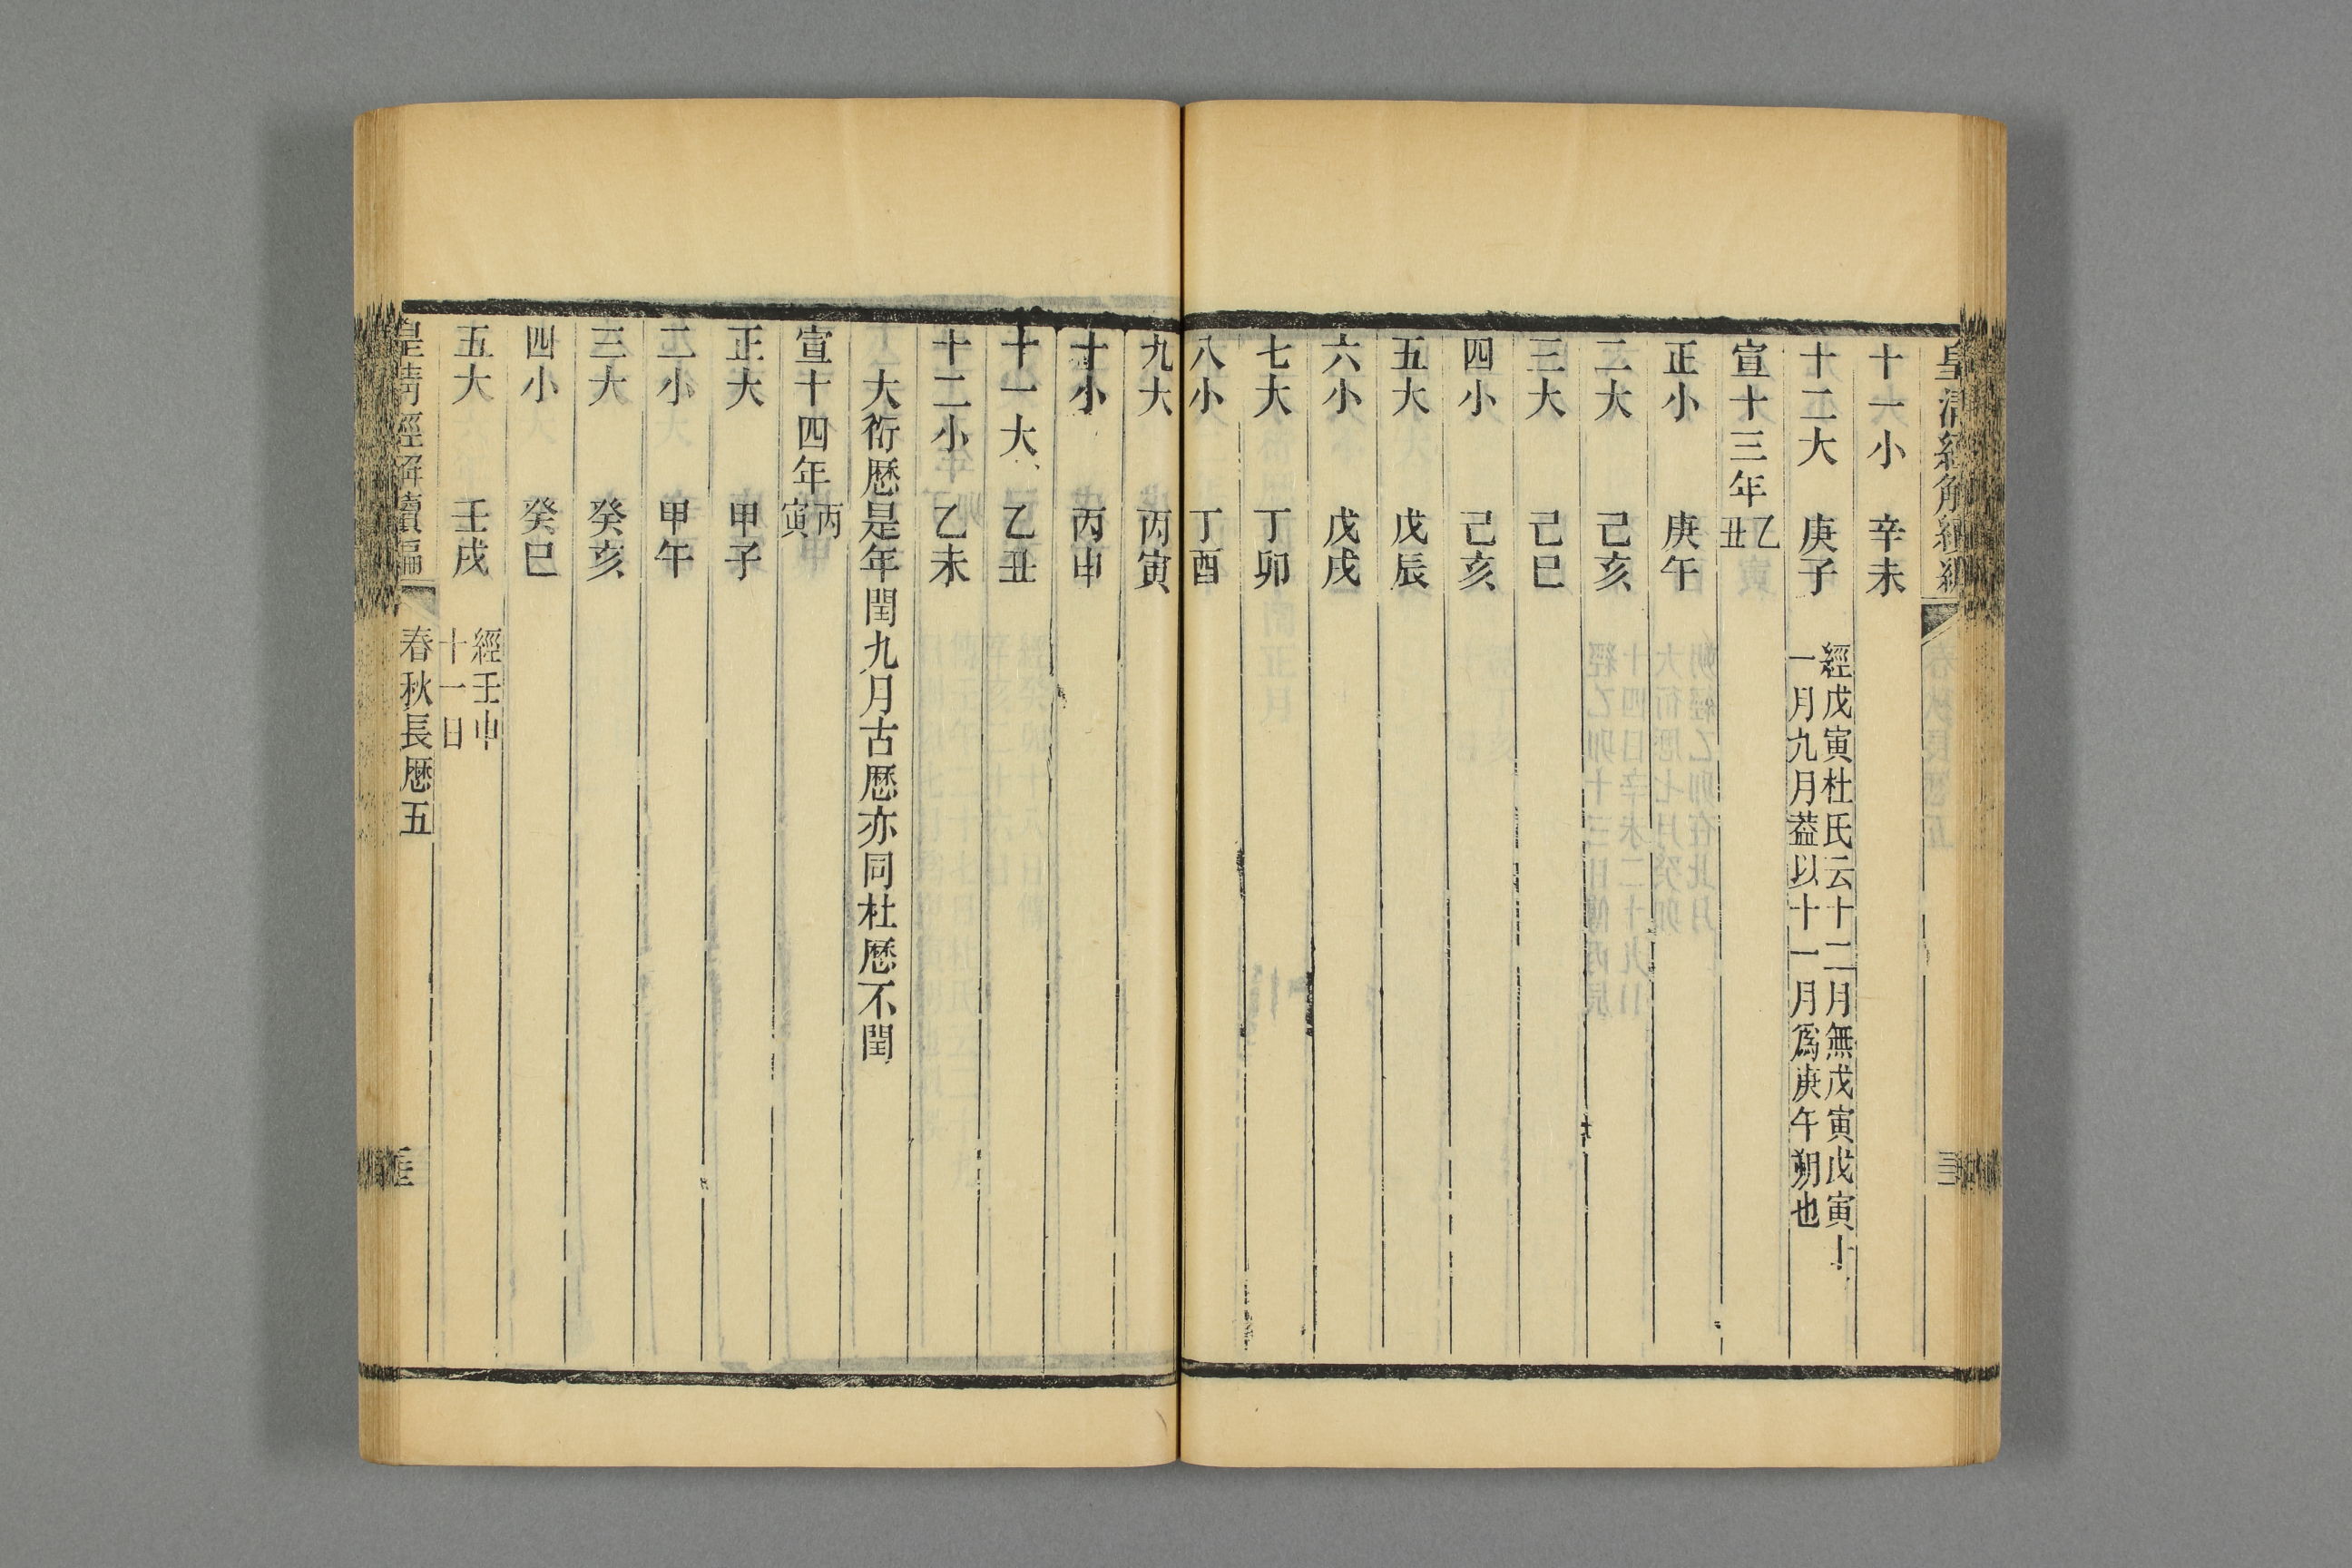 十一小 辛未
十二大 庚子 經戊寅杜氏云十二月無戊寅戊寅十
一月九月葢以十一月爲庚午朔也
宣十三年乙丑
正小 庚午
二大 己亥
三大 己巳
四小 己亥
五大 戊辰
六小 戊戌
七大 丁卯
八小 丁酉
九大 丙寅
十小 丙申
十一大 乙丑
十二小 乙未
大衍厯是年閏九月古厯亦同杜厯不閏
宣十四年丙寅
正大 甲子
二小 甲午
三大 癸亥
四小 癸巳
五大 壬戌 經壬申
十一日
皇清經解續編 春秋長厯五